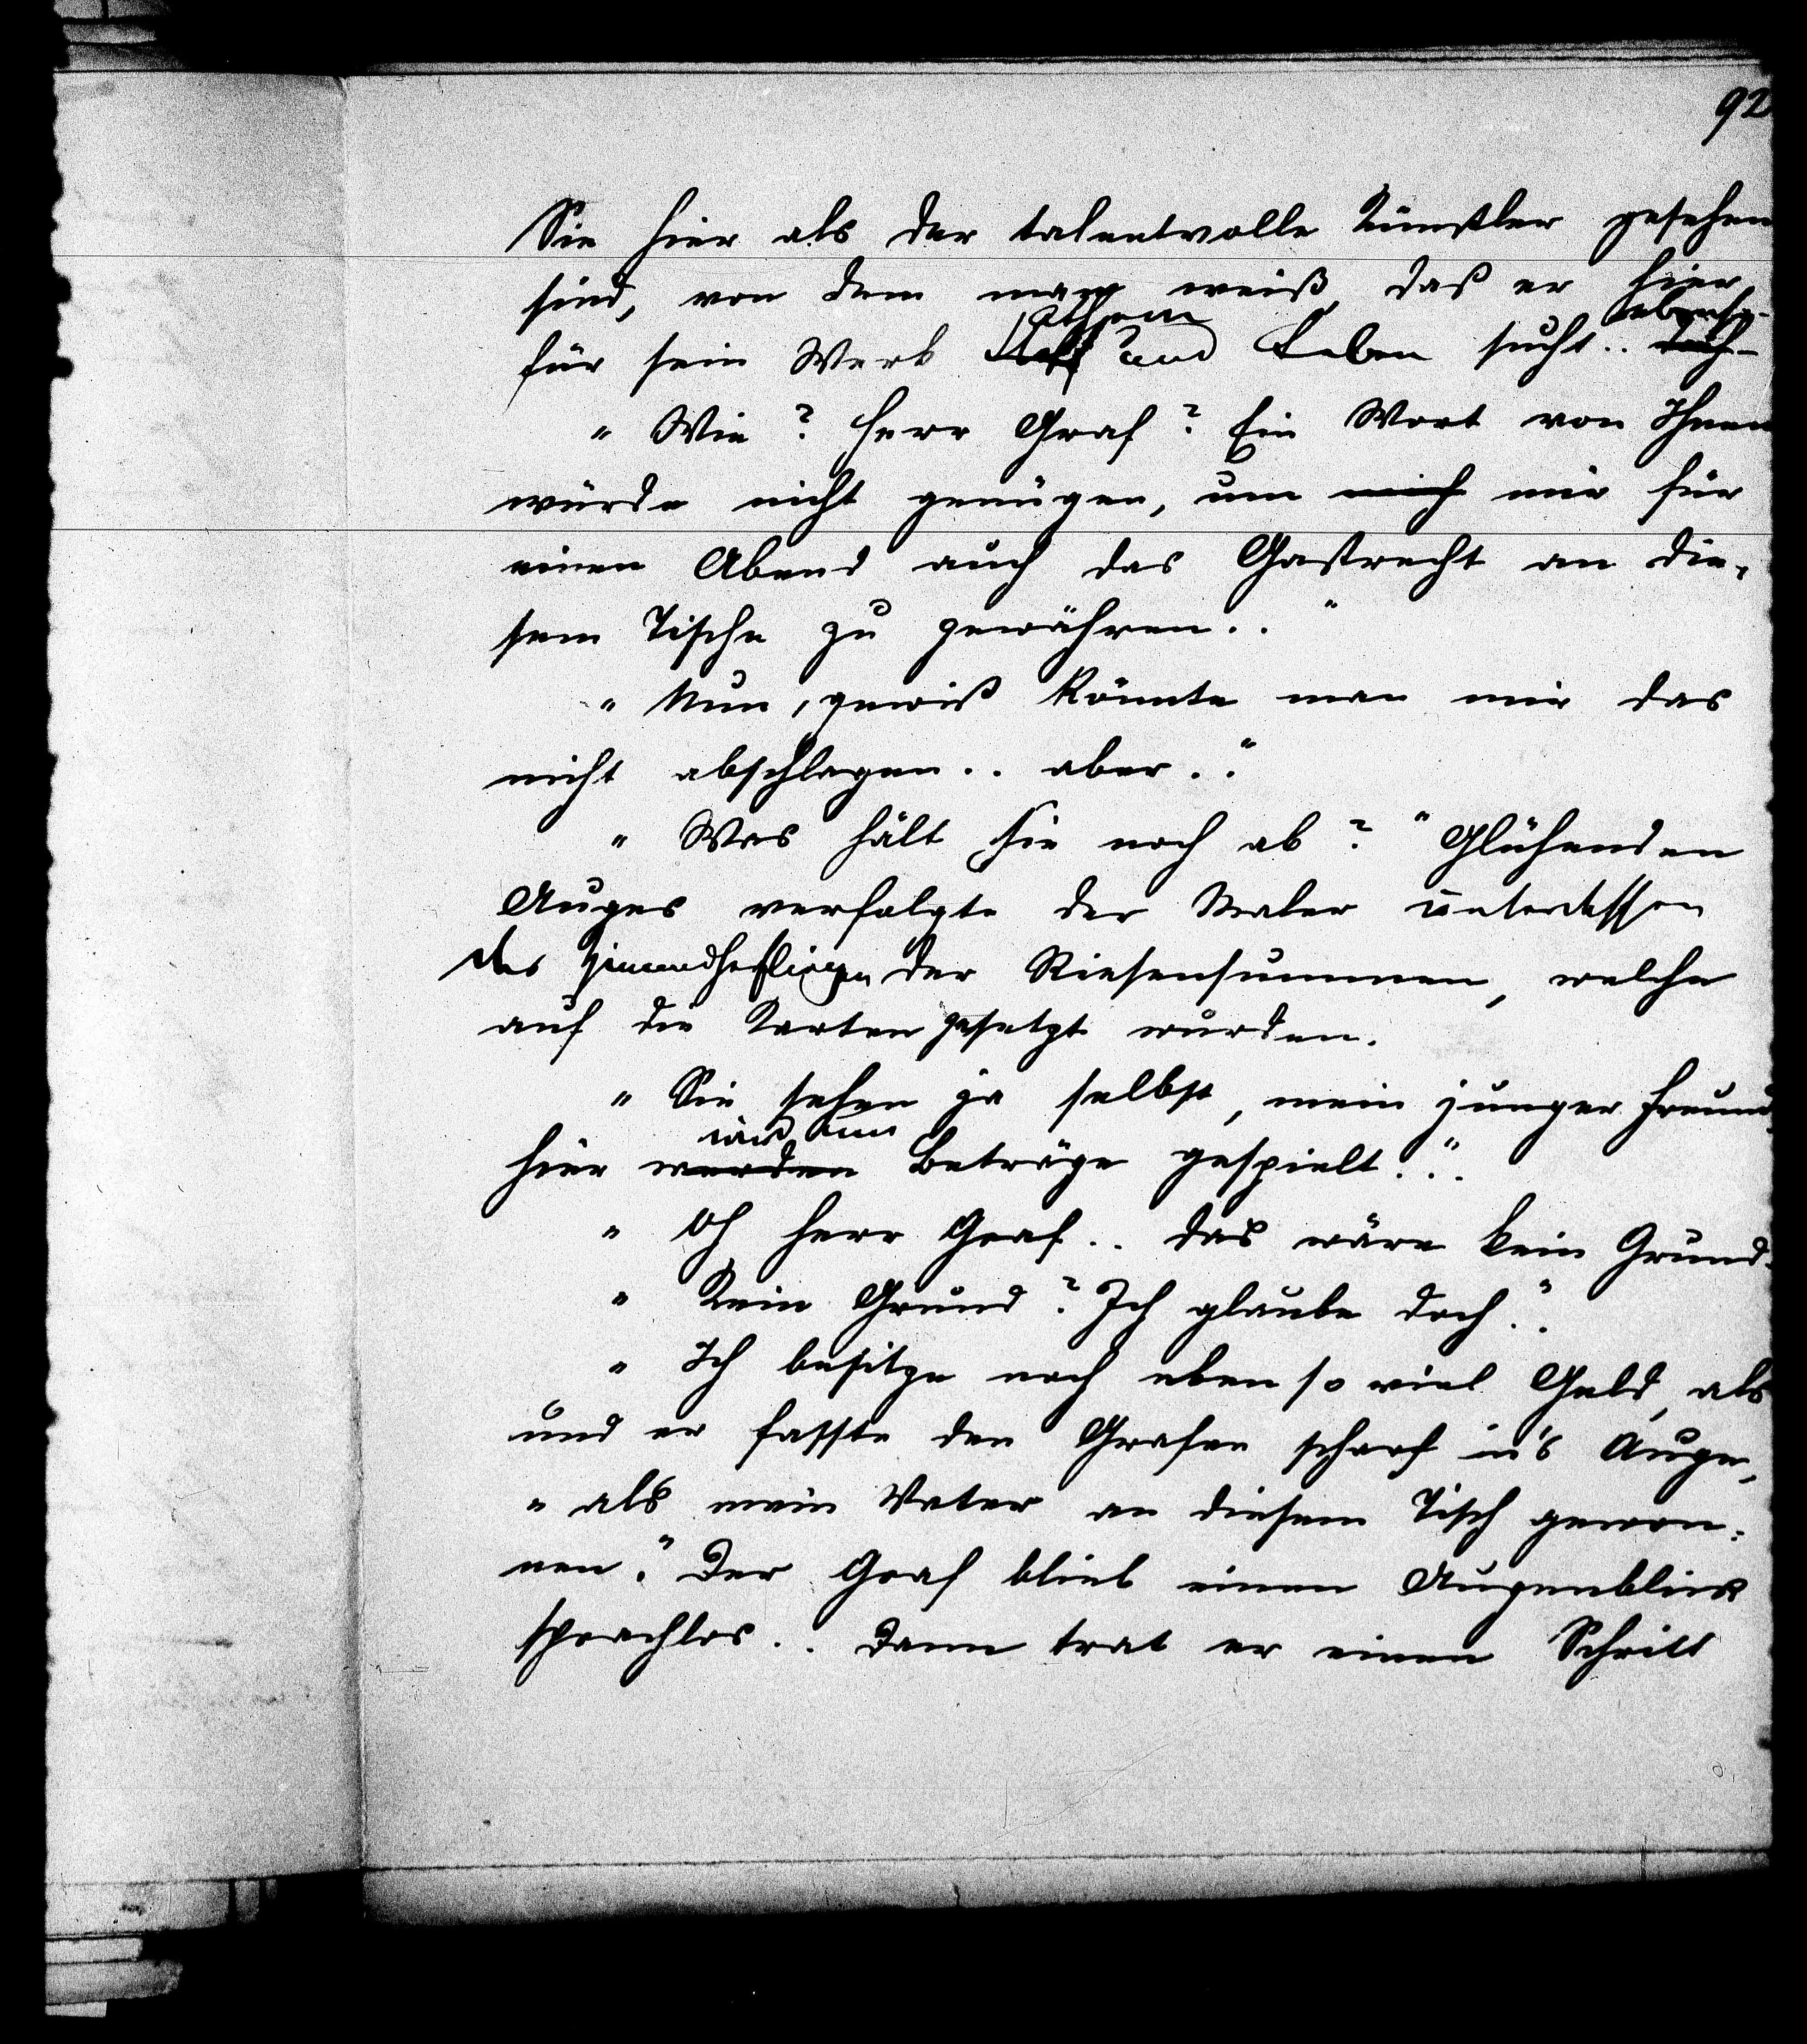 92
Sie hier als der talentvolle Künstler gesehen
sind, von dem man weiß, daß er hier
Athem
für sein Werk Stoff und Leben sucht.. doch
"Wie? Herr Graf? Ein Wort von Ihnen
würde nicht genügen, um mich mir für
einen Abend auch das Gastrecht an die-
sem Tische zu gewähren.."
"Nun, gewiß könnte man mir das
nicht abschlagen.. aber.."
"Was hält Sie noch ab?" Glühenden
Auges verfolgte der Maler unterdessen
das der Riesensummen, welche
auf die Karten gesetzt wurden.
"Sie sehen ja selbst, mein junger Freund,
wird um
hier werden Beträge gespielt.."
"Oh Herr Graf.. das wäre kein Grund.
"Kein Grund? Ich glaube doch.."
"Ich besitze noch eben so viel Geld, als
und er fasste den Grafen scharf in's Auge,
"als mein Vater an diesem Tisch gewon-
nen." Der Graf blieb einen Augenblick
sprachlos.. Dann trat er einen Schritt